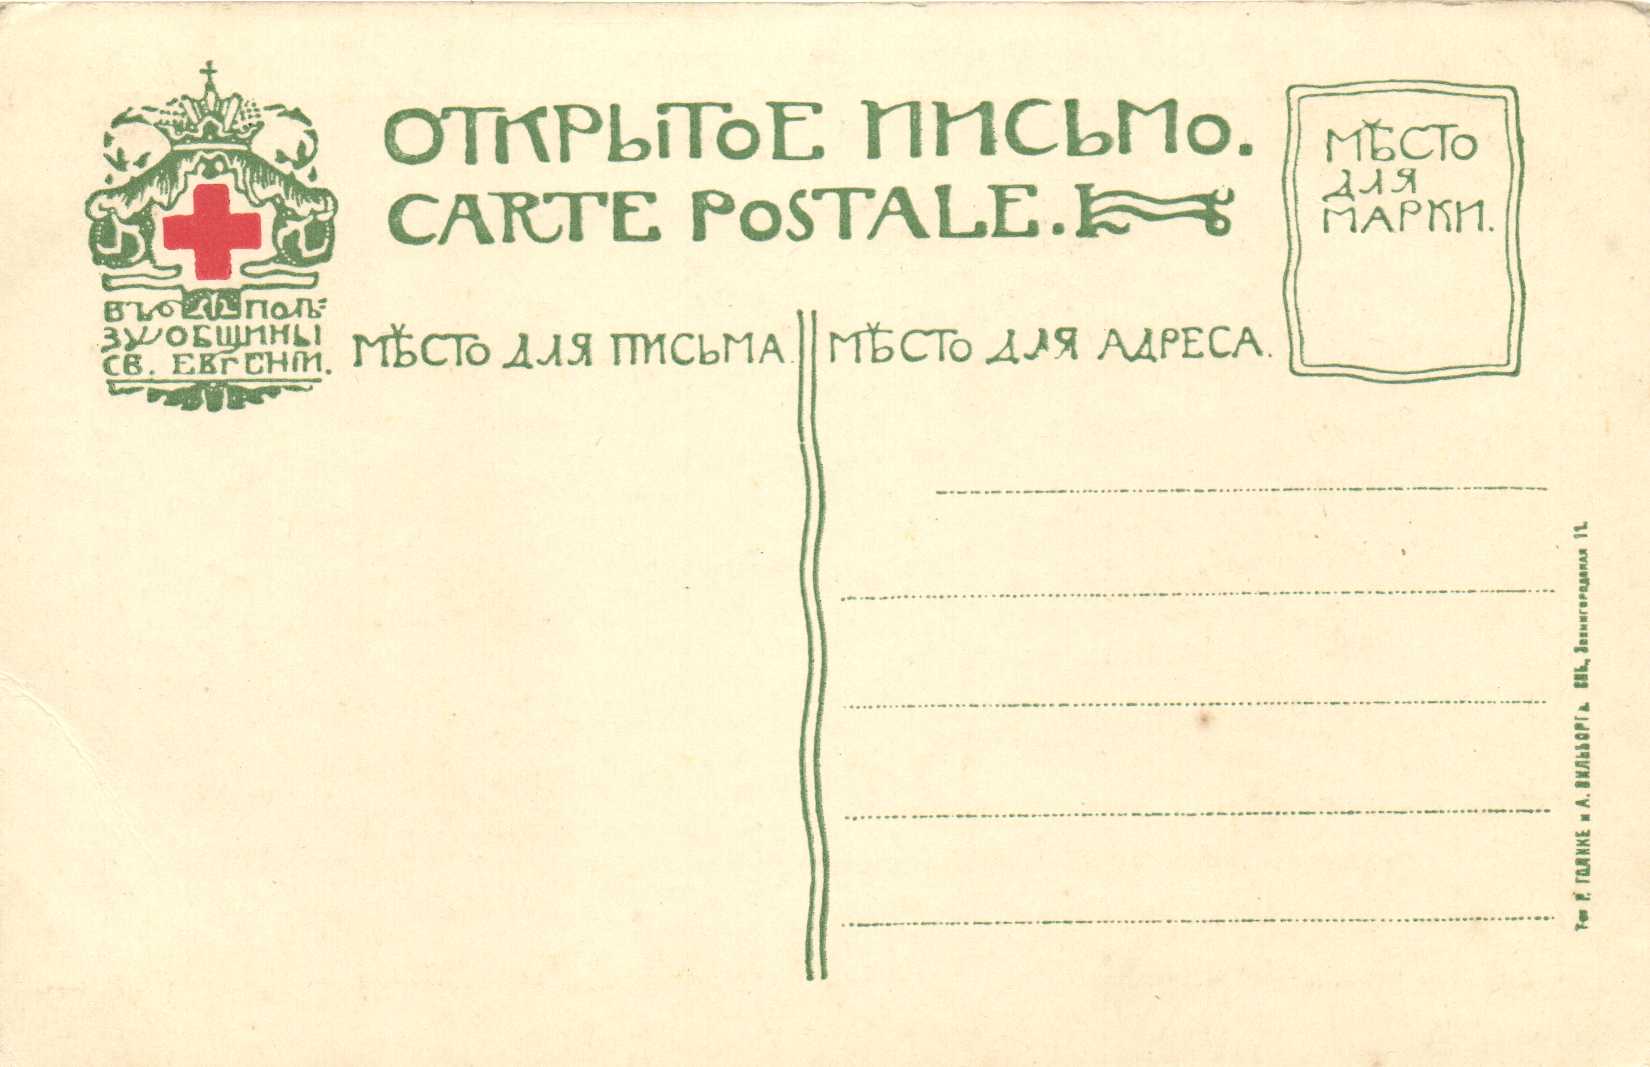 ОТКРЫТОЕ ПИСЬМО.
CARTE POSTALE.
МѢСТО
ДЛЯ
МАРКИ.
ВЪ ПОЛЬ=
ЗУ ОБЩИНЫ
СВ. ЕВГЕНІИ.
МѢСТО ДЛЯ ПИСЬМА.
МѢСТО ДЛЯ АДРЕСА.
Т-во Р. ГОЛИКЕ и А. ВИЛЬБОРГЪ. СПБ., Звенигородская 11.